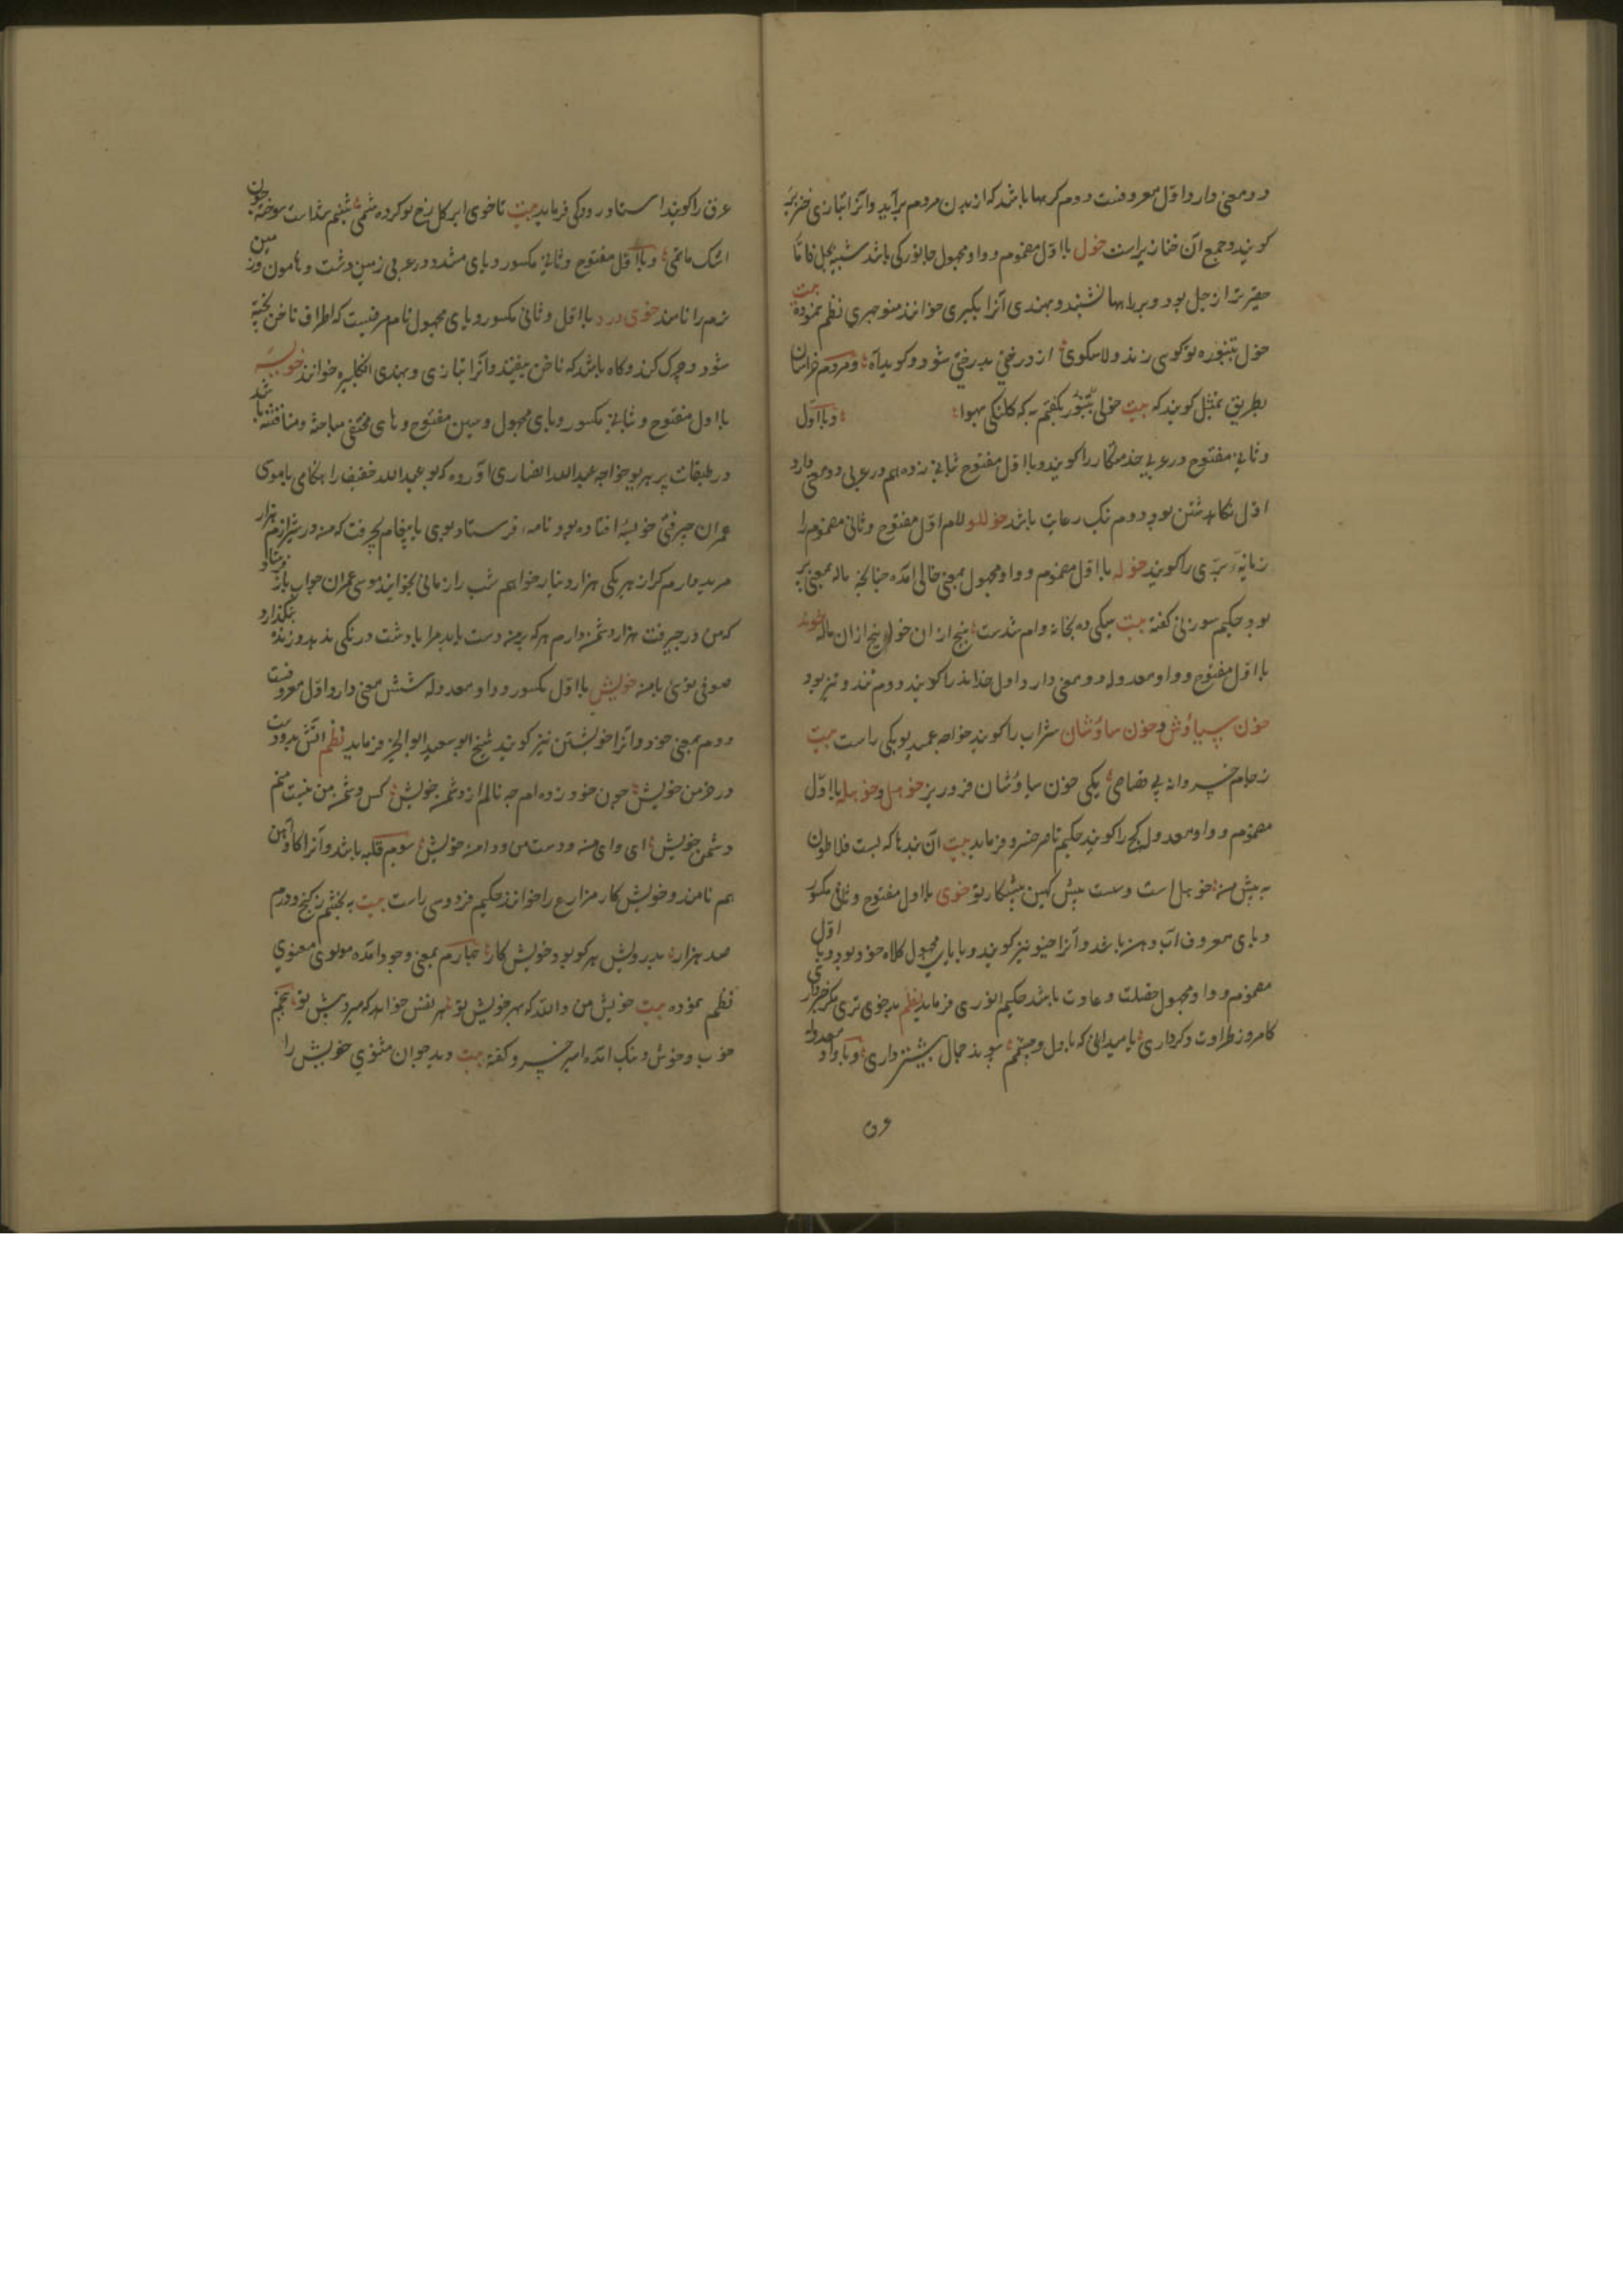 دو معنی دارد اول معروفست دوم کرهها باشد که از بدن مردم برآید و آنرا بتازی خنزیر
کویند و جمع آن خنازیر است خول با اول مضموم و واو مجهول جانورکی باشد شبیه بچل فاما
حقیرتر از چل بود و بربامها نشیند و بهندی آنرا بکیری خوانند منوچهری نظم نموده بیت
خول تنبوره تو کوی زند و لاسکوی از درختی بدرختی شود و کوید آه و مردم خراسان
بطریق تمثل کویند که بیت خولی بکفم به که کلنکی بهوا و با اول
و ثانی مفتوح در عربی خدمتکار را کویند و با اول مفتوح ثانی زده هم در عربی دو معنی دارد
اول نکاهداشتن بود دوم نیک رعایت باشد خوللو لام اول مفتوح و ثانی مضموم را
کویند خوله با اول مضموم و واو مجهول بمعنی خالی آمده چنانچه ماله بمعنی پر
بود حکیم سوزنی کفته بیت سیکی ده بخانه وام شدست پنج ازان خوله پنج ازان ماله خوند
با اول مفتوح و واو معدوله دو معنی دارد اول خداوند را کویند دوم تند و تیز بود
خون سیاوش و خون ساوشان شراب را کویند خواجه عمید لوبکی راست بیت
ز جام خسروانه پی خون ساوشان فروریز خوهل و خوهله با اول
مضموم و واو معدوله کج را کویند حکیم ناصر خسرو فرماید بیت آن بندها که بست فلاطون
به پیش من خوهل است و سست پیش کهین پیشکار تو خوی با اول مفتوح و ثانی مکسور
و یای معروف آب دهن باشد و آنرا خیو نیز کویند و با یای مجهول کلاه خود بود و با اول
مضموم و واو مجهول خصلت و عادت باشد حکیم انوری فرماید نظم بدخوی تری مکر خبر داری
کامروز طراوت دکر داری یا میدانی که با دل و چشمم پیوند جمال بیشتر داری و با واو معدوله
عرق را کویند استاد رودکی فرماید بیت تا خوی ابر کل رخ تو کرده شبنمی شبنم شداست سوخته چون
اشک ماتمی و با اول مفتوح و ثانی مکسور و یای مشدد در عربی زمین دشت و هامون و زمین
نرم را نامند خوی درد با اول و ثانی مکسور و یای مجهول نام مرضیست که اطراف ناخن پخته
شود و چرک کند و کاه باشد که ناخن بیفتد و آنرا بتازی و بهندی انکلبیره خوانند خویسه
با اول مفتوح و ثانی مکسور و یای مجهول و سین مفتوح و های مختفی مباحثه و مناقشه باشد
در طبقات پیر هری خواجه عبدالله انصاری آورده که بو عبدالله خفیف را هنکامی با موسی
عمران جیرفتی خویسه افتاده بود نامه فرستاد بوی با پیغام بجیرفت که من در شیراز هزار
مرید دارم کر از هریکی هزار دینار خواهم شب را زمانی بخوانند موسی عمران جواب باز فرستاد
که من در جیرفت هزار دشمن دارم هر که بر من دست یابد مرا با دشت درنکی ندهد و زنده نکذارد
صوفی توئی یا من خویش با اول مکسور و واو معدوله شش معنی دارد اول معروفست
دوم بمعنی خود و آنرا خویشتن نیز کویند شیخ ابوسعید ابوالخیر فرماید نظم آتش بدو دست
در خرمن خویش چون خود زده ام چه نالم از دشمن خویش کس دشمن من نیست منم
دشمن خویش ای وای من و دست من و دامن خویش سوم قلبه باشد و آنرا کاوآهن
هم نامند و خویش کار مزارع را خوانند حکیم فردوسی راست بیت به بخشم ز کنج درم
صد هزار بدرویش هر کو بود خویش کار چهارم بمعنی وجود آمده مولوی معنوی
نظم نموده بیت خویش من والله که بهر خویش تو هر نفس خواهد که میرد پیش تو پنجم
خوب و خوش و نیک آمده امیر خسرو کفته بیت دید جوان مثنوی خویش را